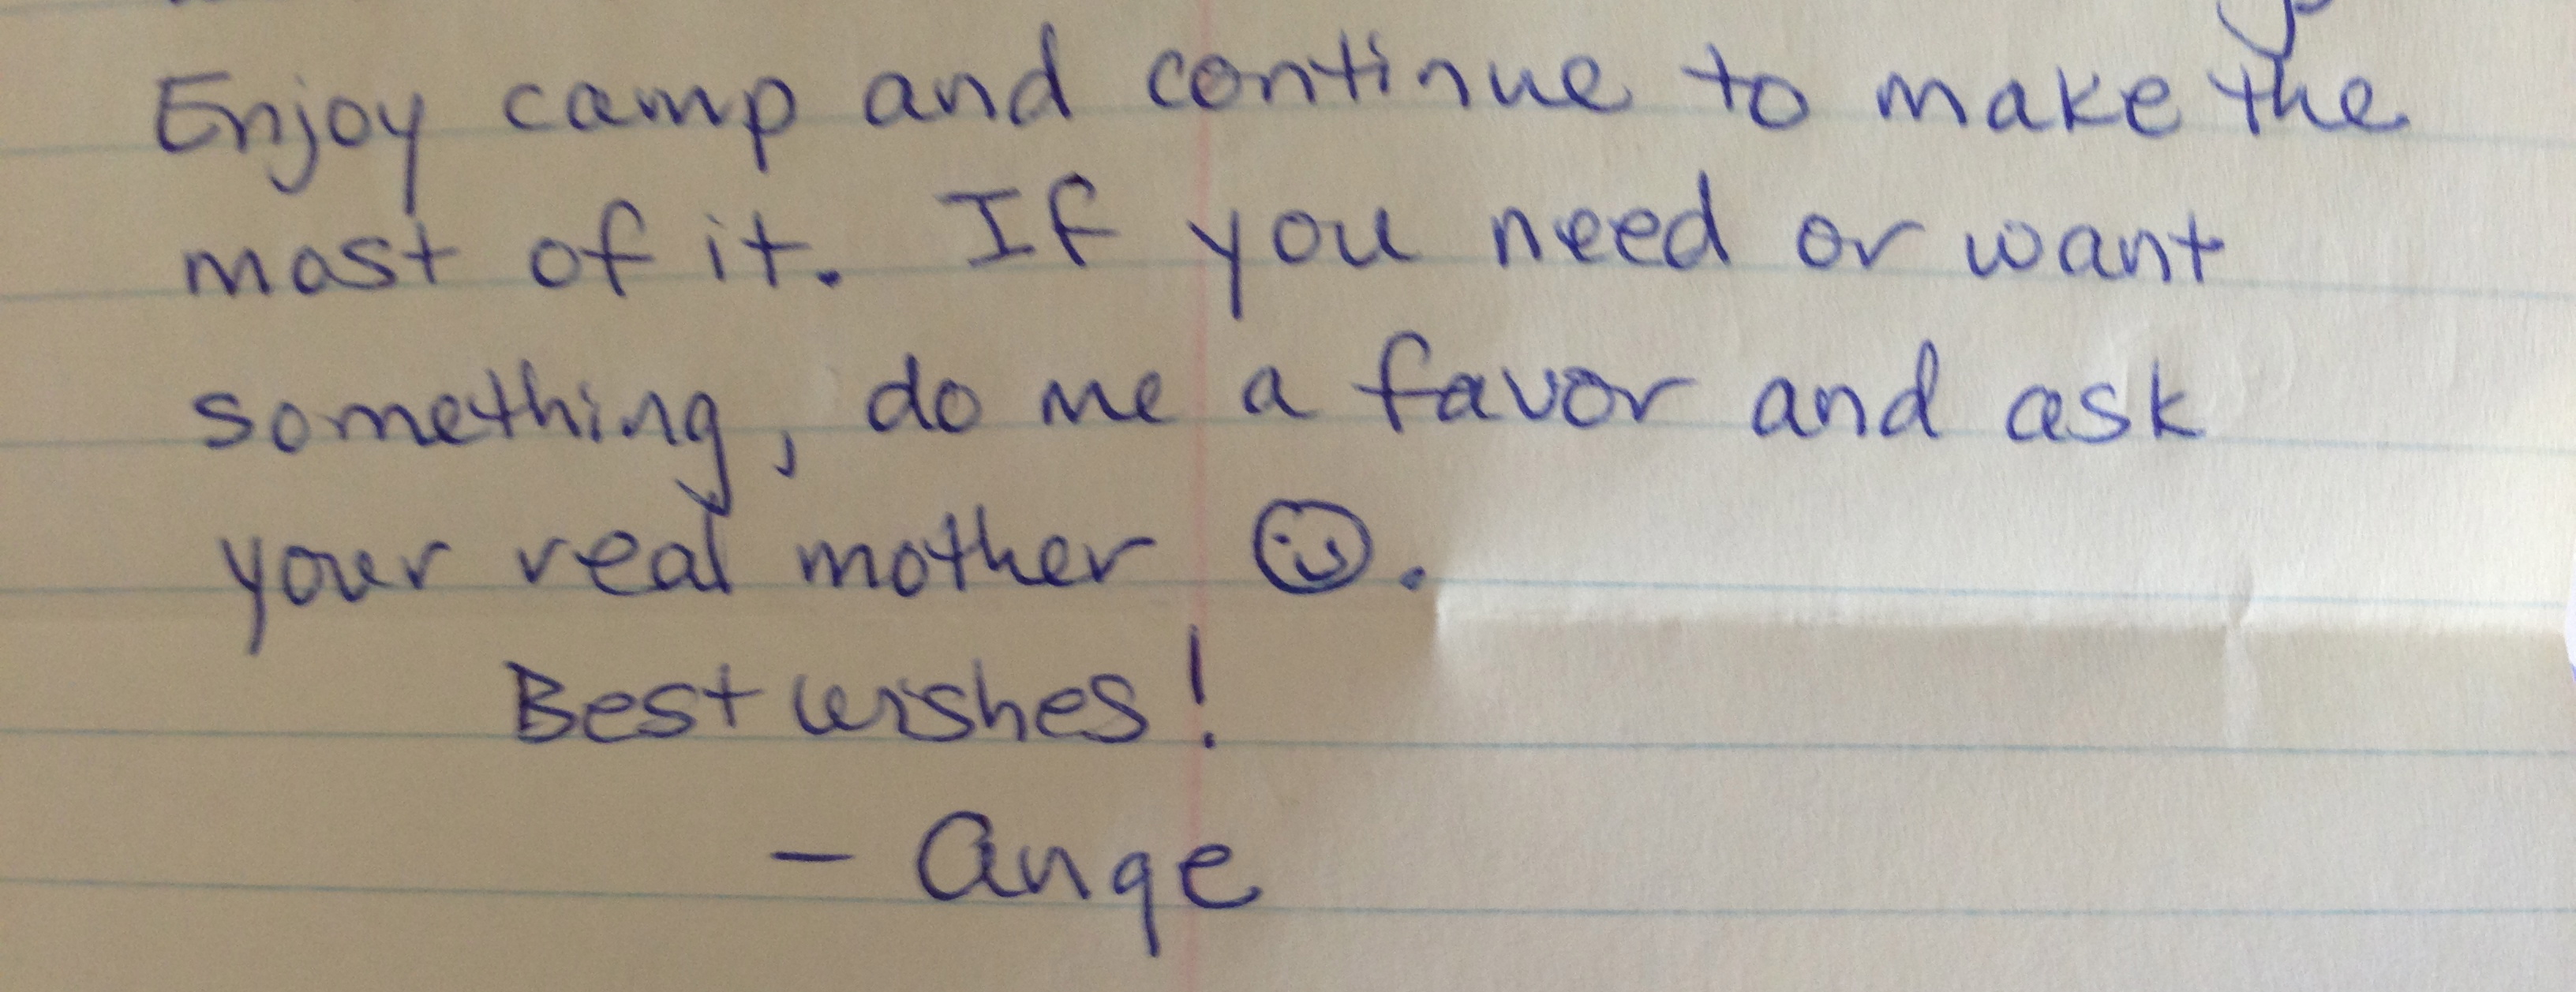 Enjoy camp and continue to make the
most of it. If you need or want
something, do me a favor and ask
your real mother ☺.
Best wishes!
- Ange